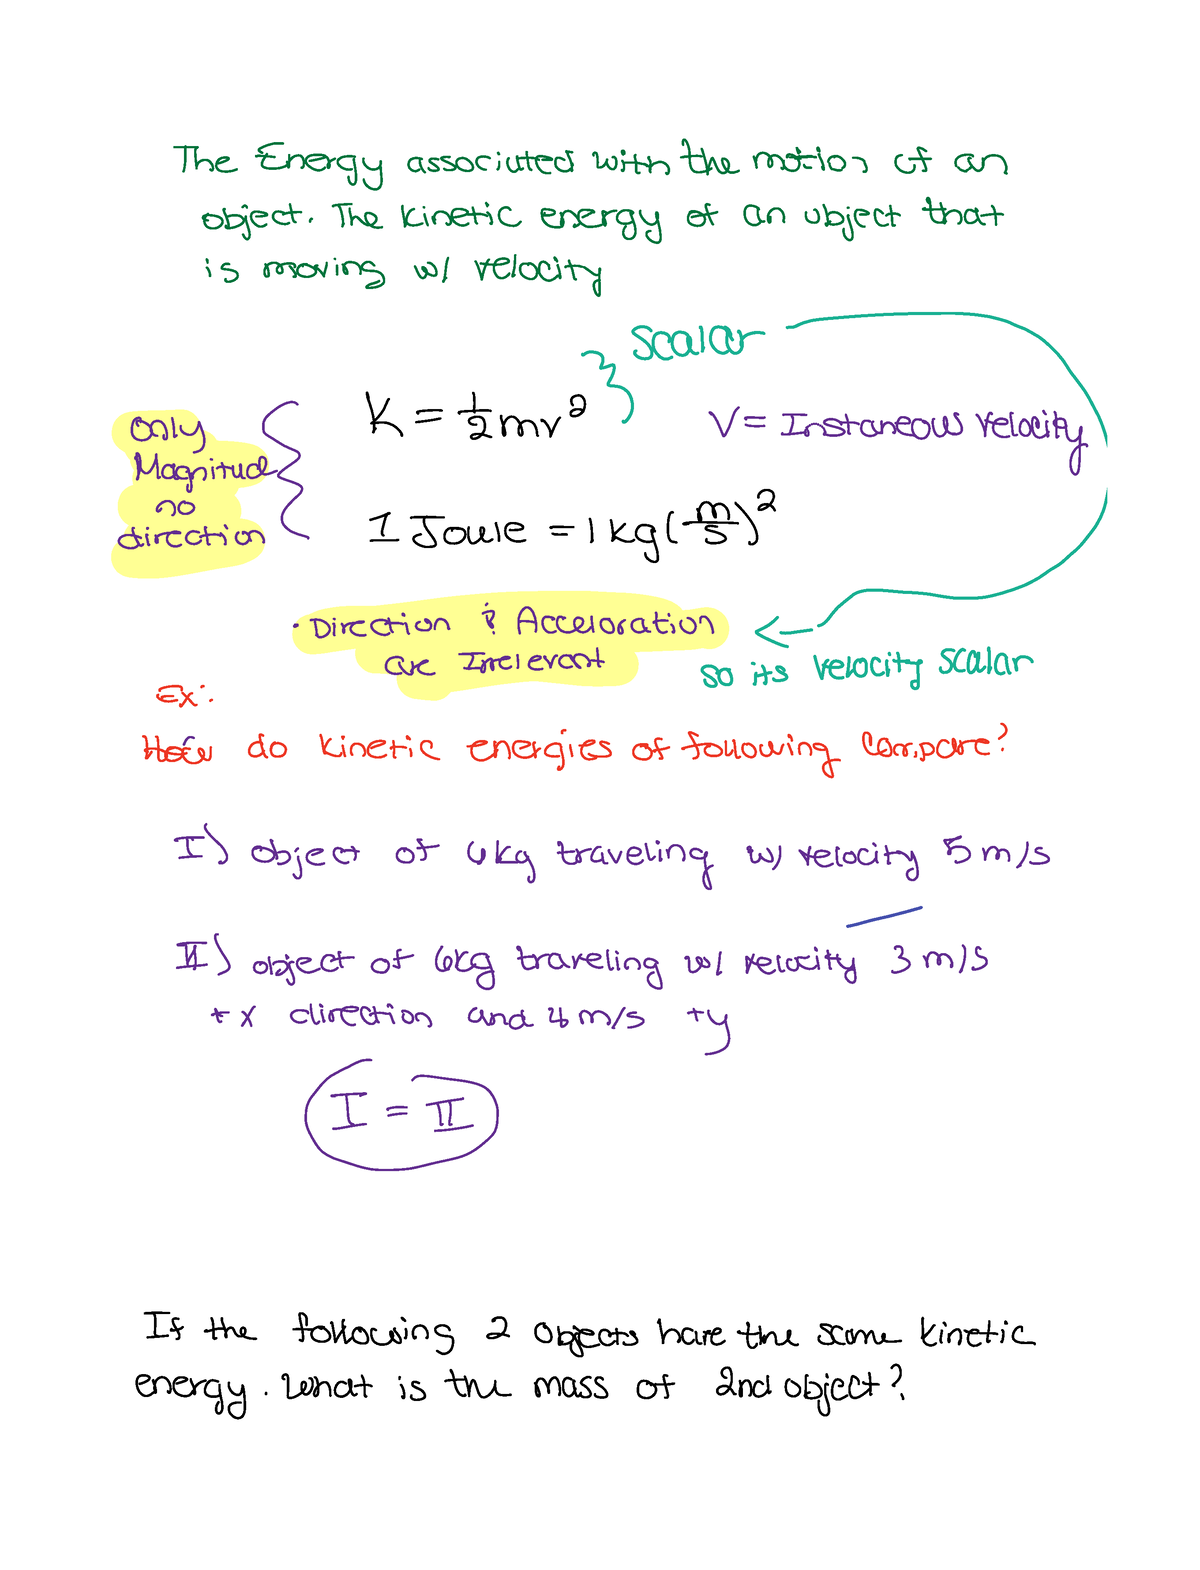 The Energy associated with the motion of an
object. The kinetic energy of an object that
is moving w/ velocity
Scalar
Only
Magnitude
no
direction
K = 1/2 mv²
V = Instaneous velocity
1 Joule = 1 kg (m/s)²
· Direction & Acceloration
are Irrelevant
so its velocity scalar
Ex:
How do kinetic energies of following compare?
I) object of 6kg traveling w/ velocity 5 m/s
II) object of 6kg traveling w/ velocity 3 m/s
+x direction and 4 m/s +y
I = II
If the following 2 objects have the same kinetic
energy. What is the mass of 2nd object?